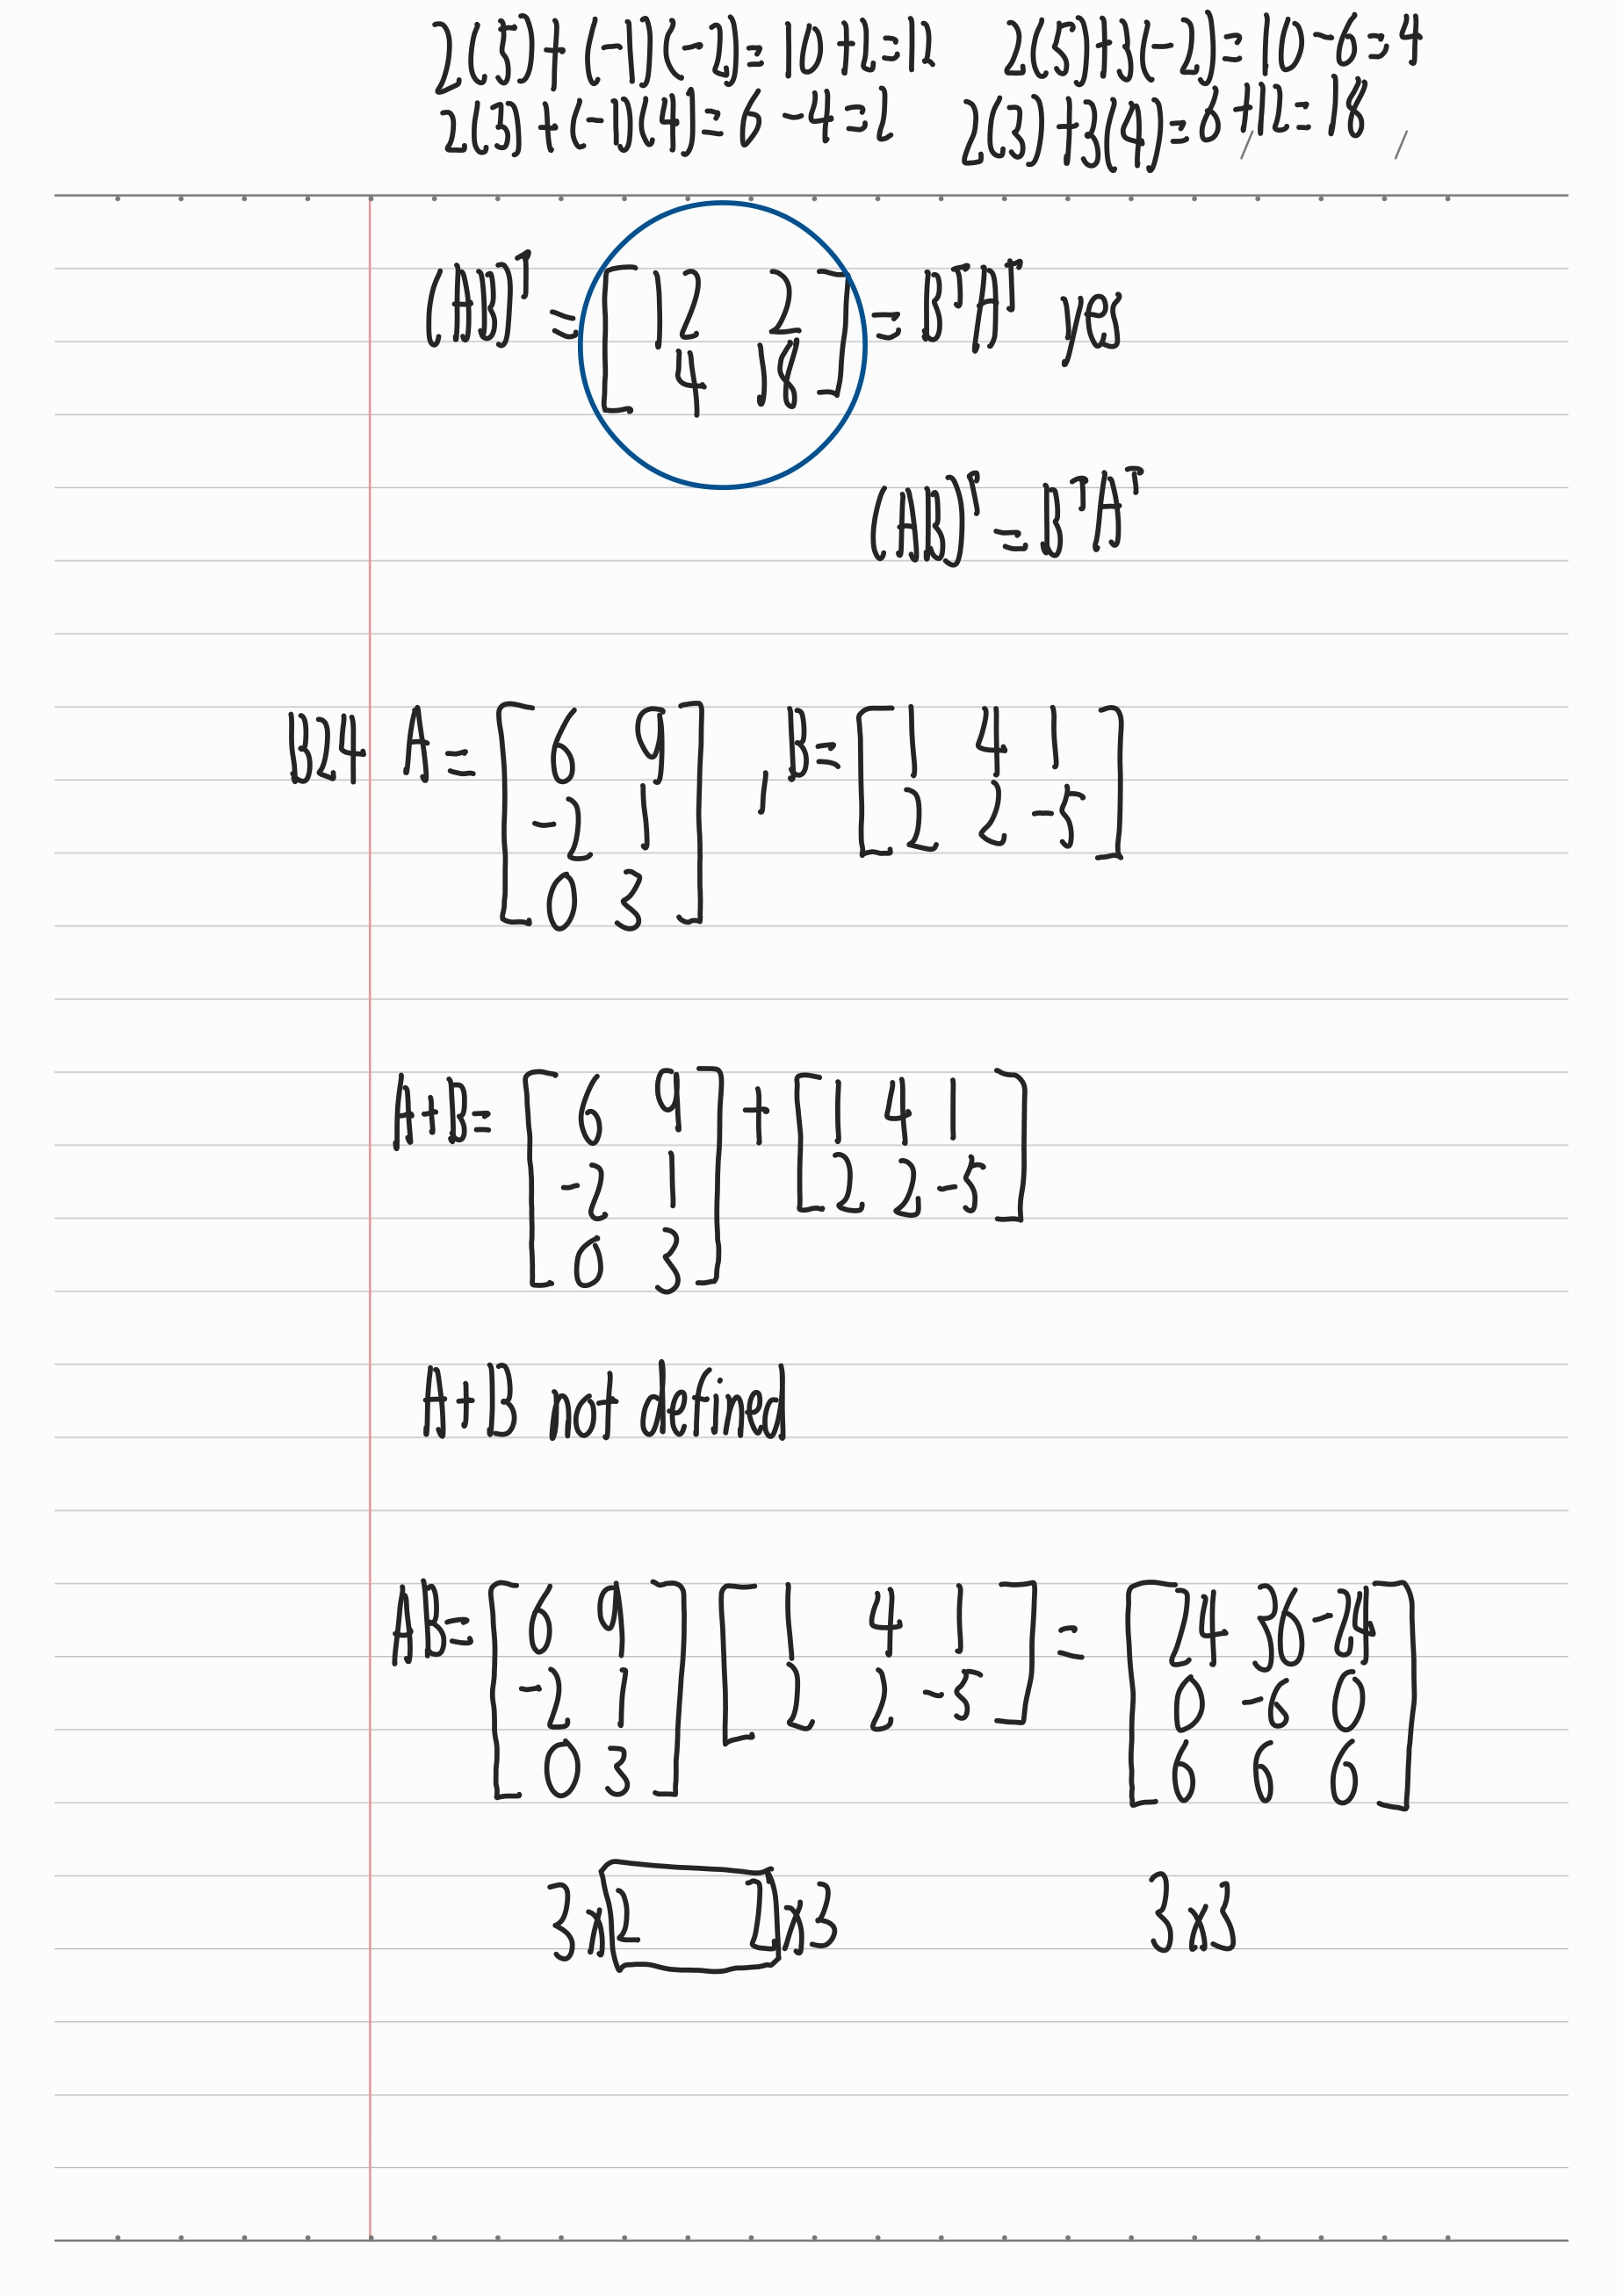 2(5)+(-1)(-2)=10+2=12 2(5)+3(-2)=10-6=4
2(3)+(-1)(4)=6-4=2 2(3)+3(4)=6+12=18
(AB)ᵀ=[12 2
4 18]=BᵀAᵀ yes
(AB)ᵀ=BᵀAᵀ
B24 A=[6 9
-2 1
0 3], B=[1 4 1
2 2 -5]
A+B=[6 9
-2 1
0 3]+[1 4 1
2 2 -5]
A+B not defined
AB=[6 9
-2 1
0 3][1 4 1
2 2 -5]=[24 36 -24
0 -6 0
6 6 6]
3x2 2x3 3x3